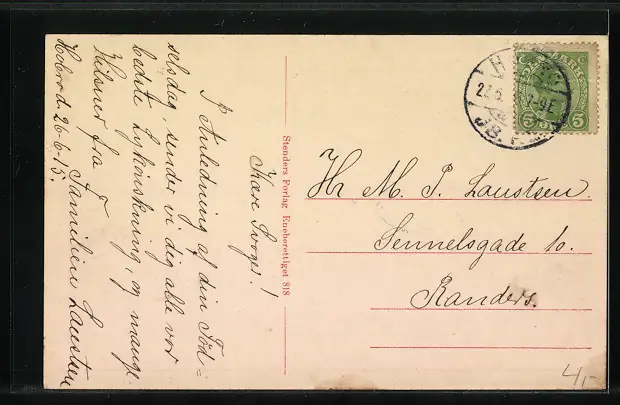 Kære Svoger!
I Anledning af din Föd=
selsdag, sender vi dig alle vor
bedste Lykønskning, og mange
Hilsner fra
Familien Laustsen
Hobro d. 26-6-15.
Stenders Forlag Eneberettiget 818
Hr M. P. Laustsen.
Sennelsgade 10.
Randers.
DANMARK
5 5
JB.P.
4,-